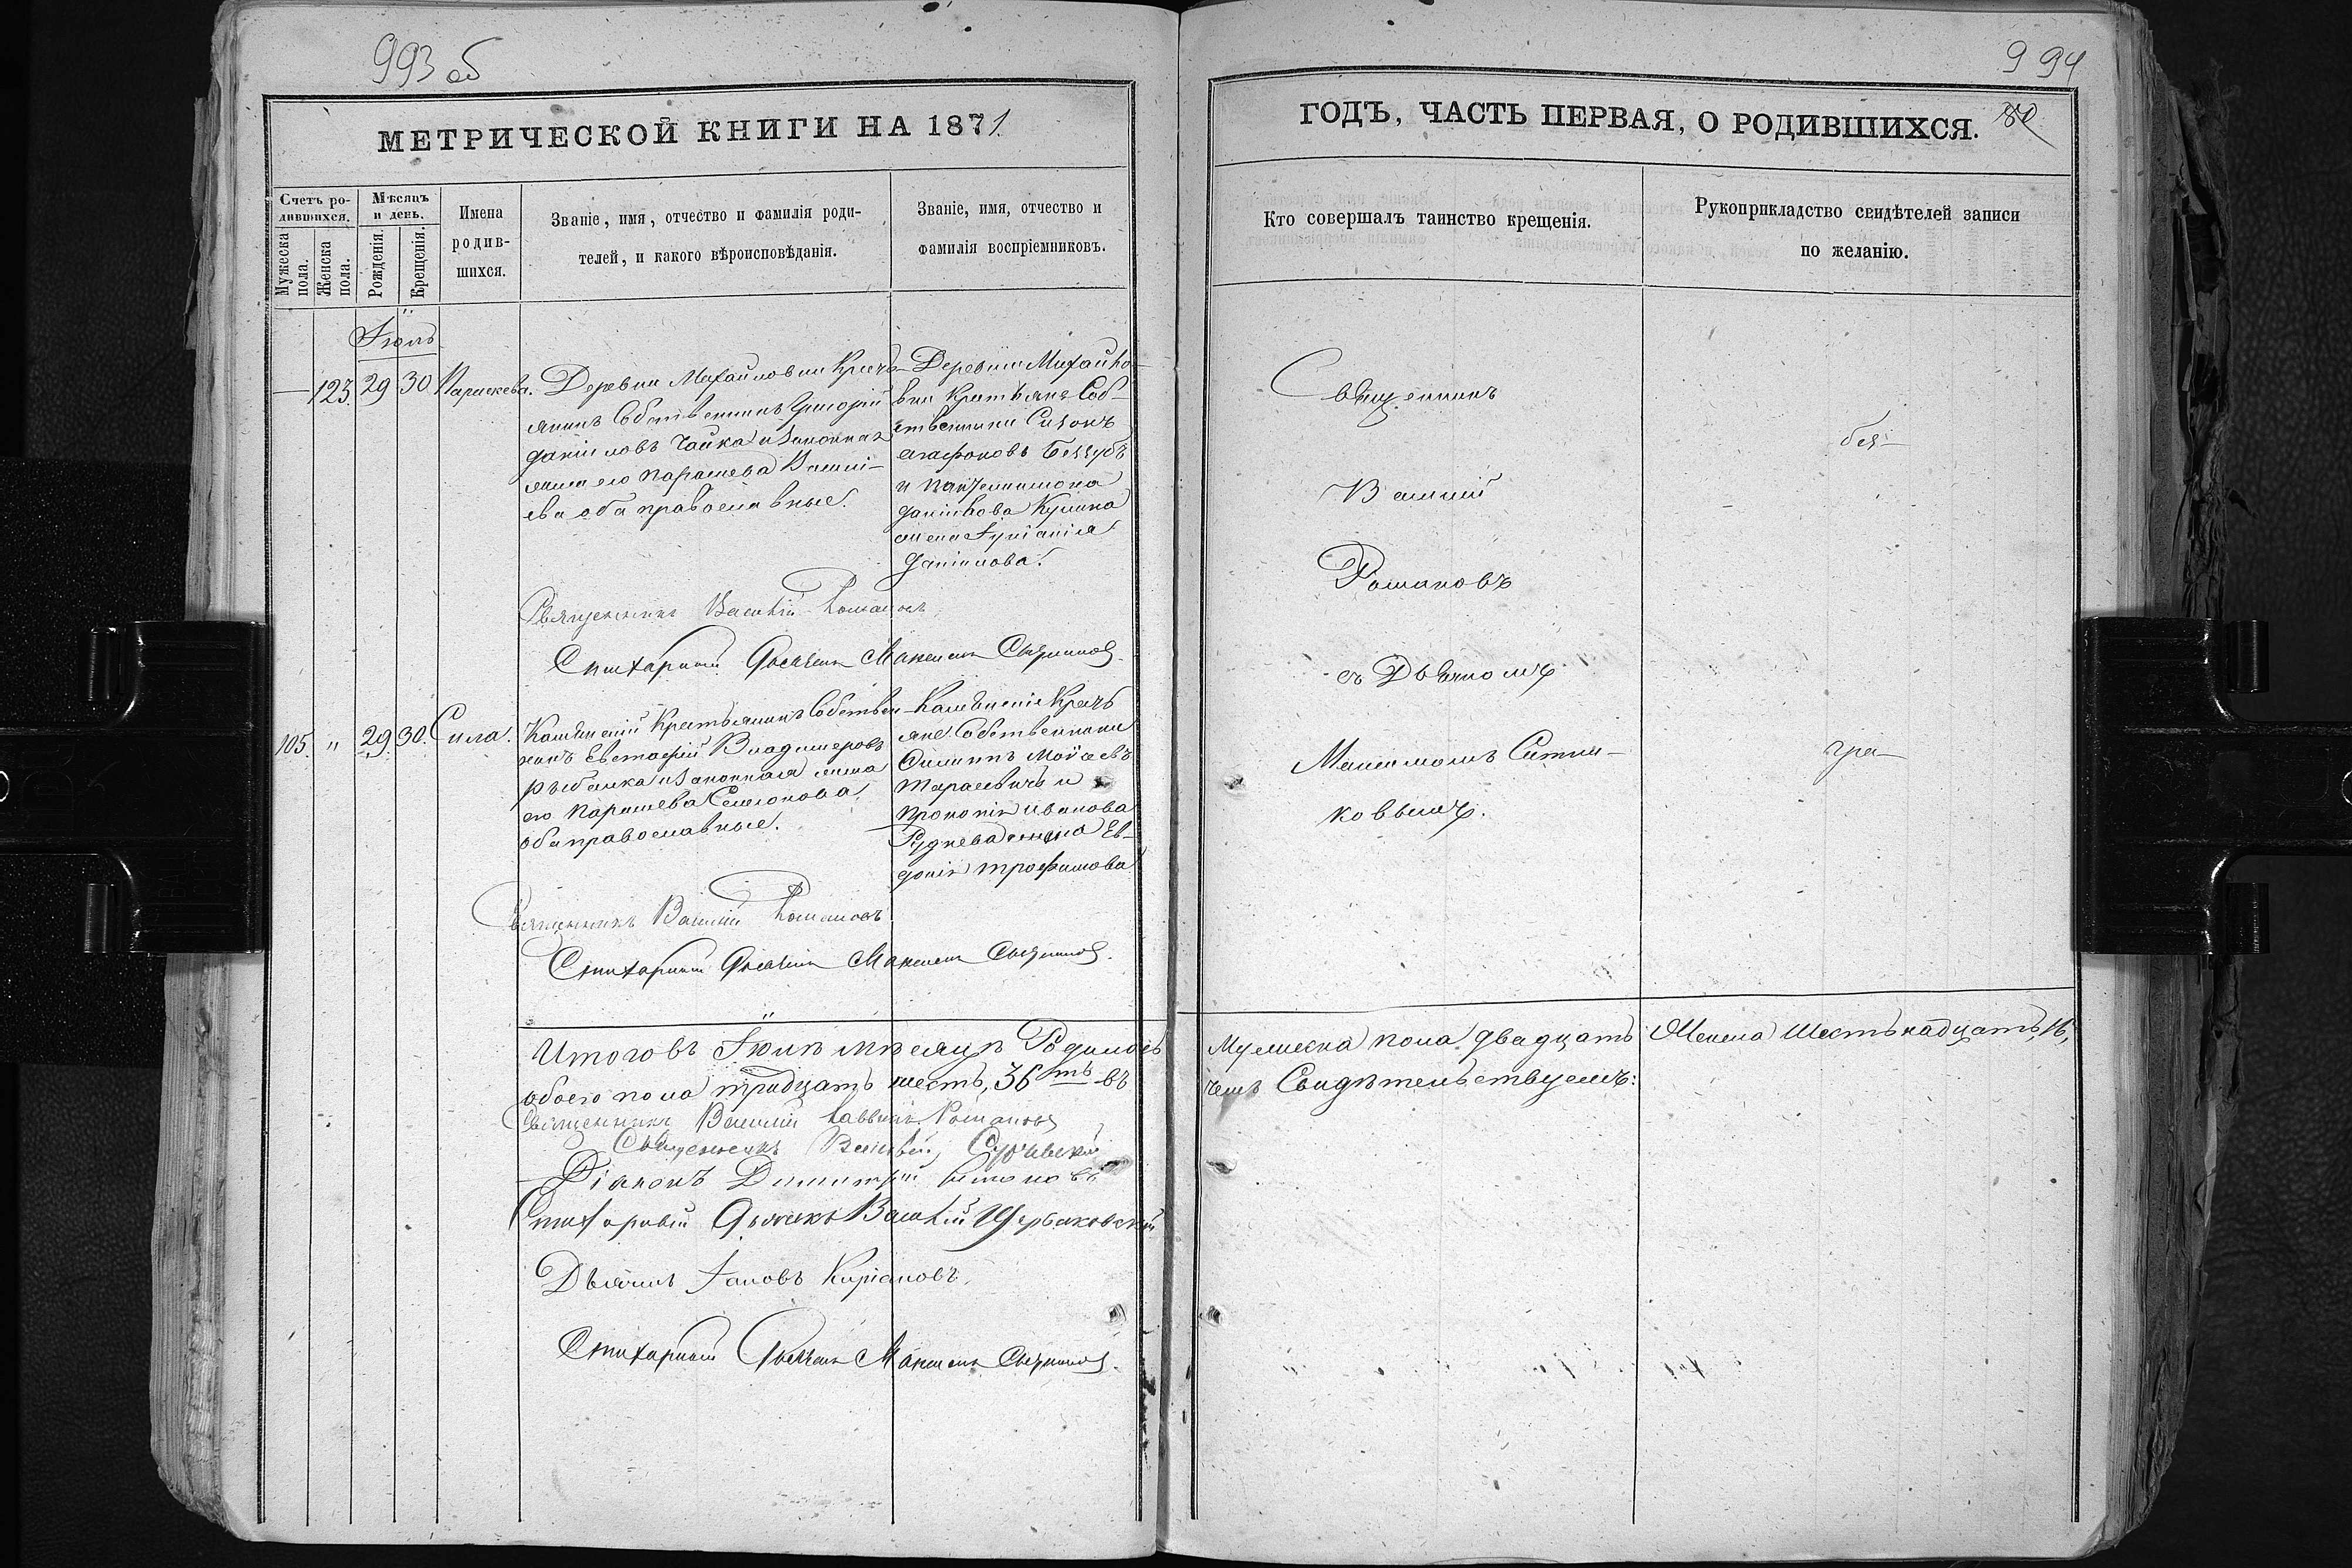 993 об
МЕТРИЧЕСКОЙ КНИГИ НА 1871.
Счетъ ро-
дившихся.
Мужеска пола.
Женска пола.
Мѣсяцъ
и день.
Рожденія.
Крещенія.
Имена
родив-
шихся.
Званіе, имя, отчество и фамилія роди-
телей, и какого вѣроисповѣданія.
Званіе, имя, отчество и
фамилія воспріемниковъ.
Іюль
— 123. 29 30 Параскева.
Деревни Михайловки Кресть-
янинъ Собственникъ Григорій
Даніиловъ Чайка и Законная
жена его Параскева Васи-
ева оба православные.
Деревни Михайло-
вки Крестьяне Соб-
ственники Сизонъ
Агафоновъ Беззубъ
и Пантелимона
Даніилова Кулика
жена Іуліанія
Даніилова.
Священникъ Василій Романовъ
Стихарный Дьячекъ Максимъ Ситниковъ
105. " 29. 30. Сила.
Крестьянинъ Собствен-
никъ Евстафій Владимеровъ
Рыбалка и Законная жена
его Параскева Семионова
оба православные.
Кресть
яне Собственники
Филиппъ Моѵсеевъ
Тарасевичъ и
Прокопія Иванова
Руднева жена Ев-
докія Трофимова
Священникъ Василій Романовъ
Стихарный Дьячекъ Максимъ Ситниковъ.
Итого въ Іюлѣ мѣсяцѣ Родилось
обоего пола тридцать шесть, 36ть въ
Священникъ Василій Романовъ
Священникъ Василій
Діаконъ Димитрій
Стихарный Дьячекъ Василій Щербаковскій
Дьячекъ Іаковъ Киріаковъ
Стихарный Дьячекъ Максимъ Ситниковъ.
994
80
ГОДЪ, ЧАСТЬ ПЕРВАЯ, О РОДИВШИХСЯ.
Кто совершалъ таинство крещенія.
Рукоприкладство свидѣтелей записи
по желанію.
Священникъ
Василій
Романовъ
съ Дьячкомъ
Максимомъ Ситни-
ковымъ.
Мужеска пола двадцать
Женска Шестьнадцать, 16,
чемъ Свидѣтельствуемъ: